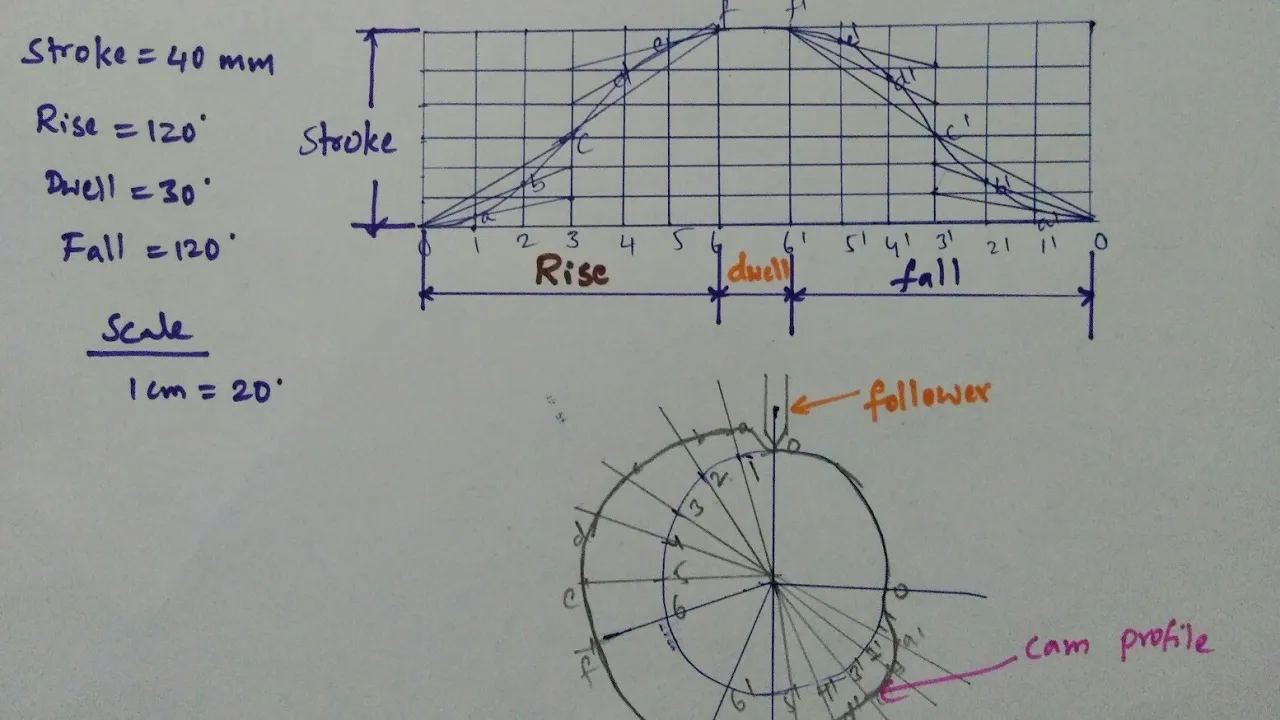 Stroke = 40 mm
Rise = 120°
Dwell = 30°
Fall = 120°
Scale
1 cm = 20°
Stroke
f f'
e e'
d d'
c c'
b b'
a a'
0 1 2 3 4 5 6 6' 5' 4' 3' 2' 1' 0
Rise dwell fall
follower
b a 0
1
2
3
d 4
e 5
6
f
0
a'
cam profile
6' 5' 4' 3'